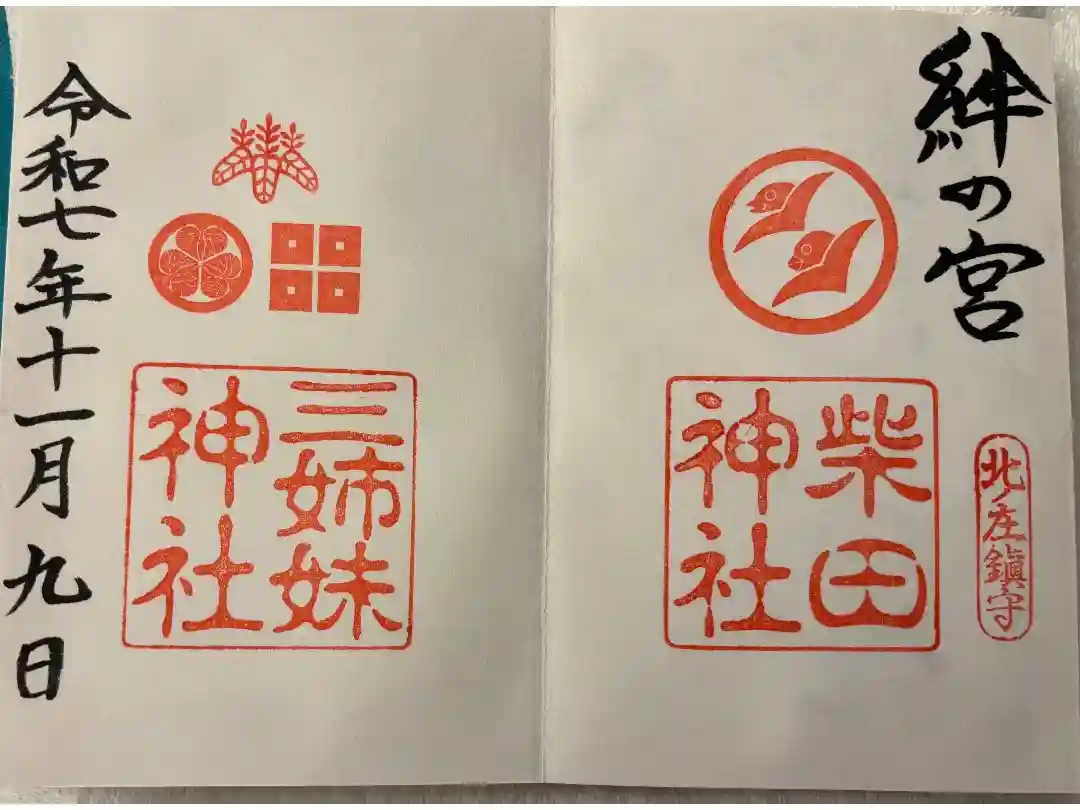 絆の宮
北ノ庄鎮守
柴田
神社
三姉妹
神社
令和七年十一月九日